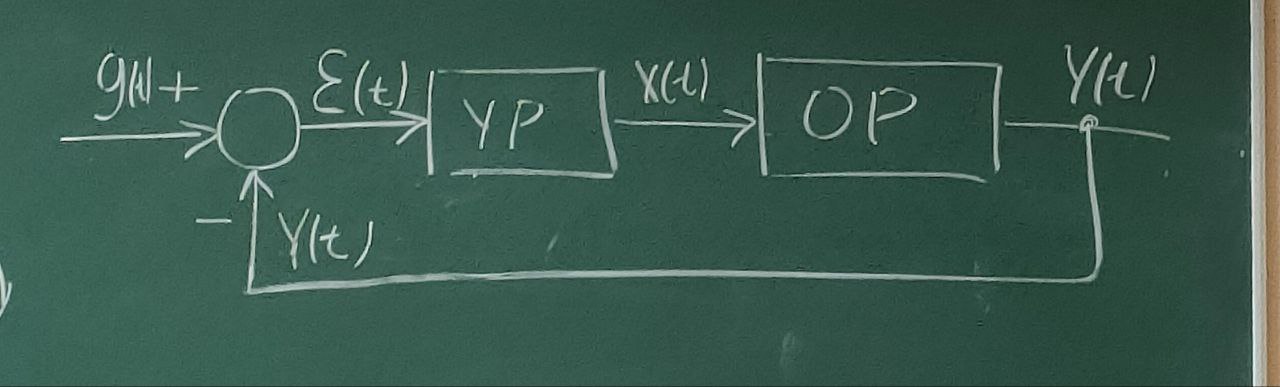 g(t) + ℰ(t) УР X(t) ОР Y(t)
− Y(t)